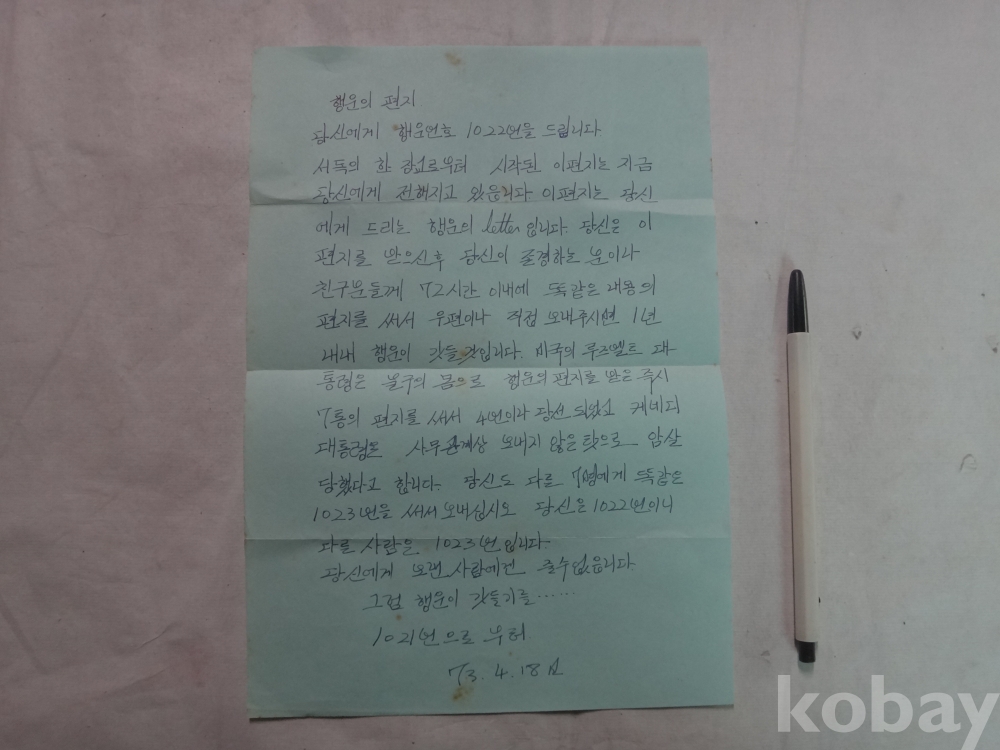 행운의 편지
당신에게 행운번호 1022번을 드립니다
서독의 한 으로부터 시작된 이편지는 지금
당신에게 전해지고 있읍니다 이편지는 당신
에게 드리는 행운의 letter입니다. 당신은 이
편지를 받으신후 당신이 존경하는 분이나
친구분들께 72시간 이내에 똑같은 내용의
편지를 써서 우편이나 직접 보내주시면 1년
내내 행운이 깃들 것입니다. 미국의 루즈벨트 대
통령은 불구의 몸으로 행운의 편지를 받은 즉시
7통의 편지를 써서 4번이나 당선 되었고 케네디
대통령은 사무관계상 보내지 않은 탓으로 암살
당했다고 합니다. 당신도 다른 7명에게 똑같은
1023번을 써서 보내십시오 당신은 1022번이니
다른 사람은 1023번 입니다.
당신에게 보낸 사람에겐 줄수없읍니다.
그럼 행운이 깃들기를......
1021번으로 부터
73. 4. 18日
kobay